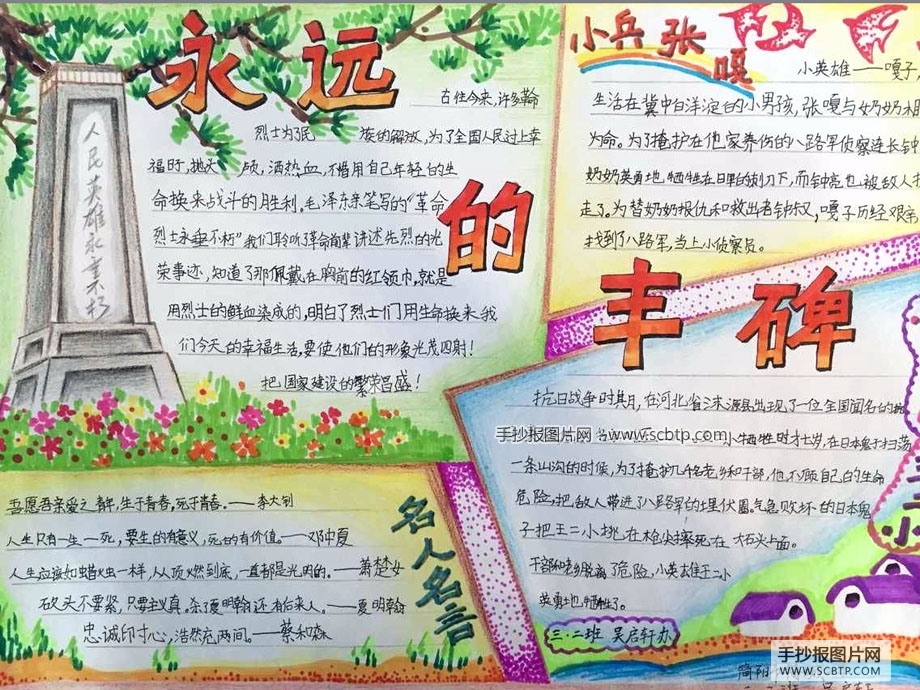 永远
的
丰碑
人民英雄永垂不朽
古往今来,许多革命
烈士为了民族的解放,为了全国人民过上幸
福时,抛头颅,洒热血,不惜用自己年轻的生
命换来战斗的胜利。毛泽东亲笔写的“革命
烈士永垂不朽”我们聆听革命前辈讲述先烈的光
荣事迹,知道了那佩戴在胸前的红领巾,就是
用烈士的鲜血染成的,明白了烈士们用生命换来我
们今天的幸福生活,要使他们的形象光茂四射!
把国家建设的繁荣昌盛!
小兵张嘎
小英雄——嘎子
生活在冀中白洋淀的小男孩,张嘎与奶奶相
为命。为了掩护在他家养伤的八路军侦察连长钟
奶奶英勇地牺牲在日军的刺刀下,而钟亮也被敌人
走了。为替奶奶报仇和救出老钟叔,嘎子历经艰
找到了八路军,当上小侦察员。
抗日战争时其月,在河北省涞源县出现了一位全国闻名的
手抄报图片网 www.scbtp.com
小牺牲时才七岁,在日本鬼子扫荡
一条山沟的时候,为了掩护几个老乡和干部,他不顾自己的生命
危险,把敌人带进了八路军的埋伏圈。气急败坏的日本鬼
子把王二小挑在枪尖摔死在大石头上面。
干部和老乡脱离了危险,小英雄王二小
英勇地牺牲了。
三·二班 吴启轩办
名人名言
吾愿吾亲爱之青年,生于青春,死于青春。——李大钊
人生只有一生一死,要生的有意义,死的有价值。——邓中夏
人生应该如蜡烛一样,从顶燃到底,一直都是光明的。——萧楚女
砍头不要紧,只要主义真,杀了夏明翰还有后来人。——夏明翰
忠诚印寸心,浩然充两间。——蔡和森
简阳
手抄报图片网
WWW.SCBTP.COM